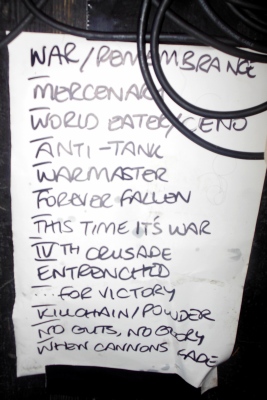 WAR/REMEMBRANCE
MERCENARY
WORLD EATER/CENO
ANTI-TANK
WARMASTER
FOREVER FALLEN
THIS TIME IT'S WAR
IVTH CRUSADE
ENTRENCHED
...FOR VICTORY
KILLCHAIN/POWDER
NO GUTS, NO GLORY
WHEN CANNONS FADE